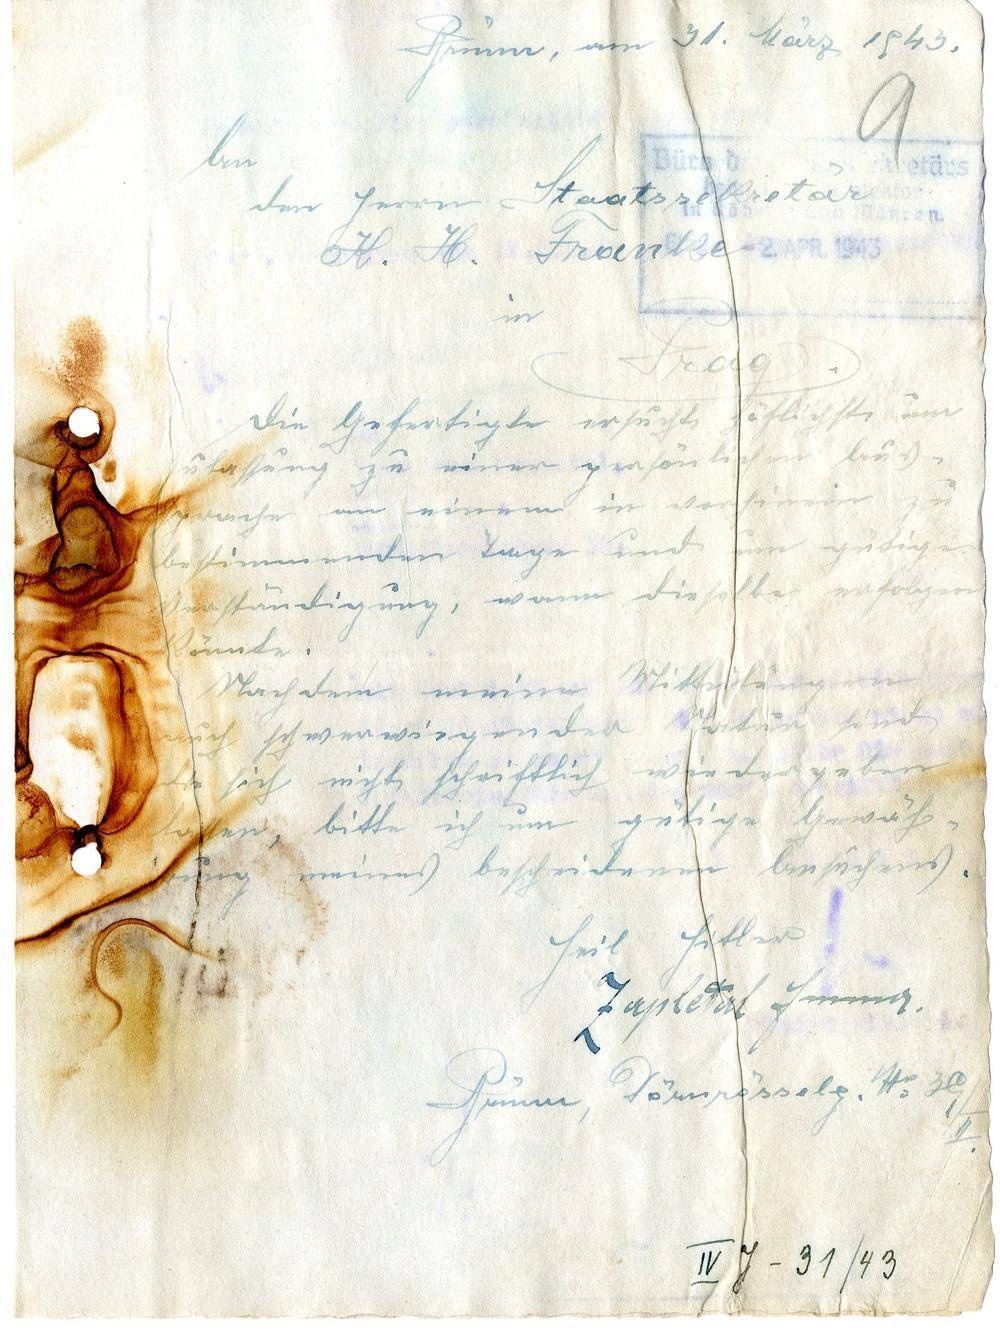 Brünn, am 31. März 1943.
9
An
den Herrn Staatssekretär
K. H. Franke
in
Prag.
Büro d kretärs
in Böh und Mähren
-2. APR. 1943
Die Gefertigte ersucht höflichst um
ulassung zu einer persönlichen Aus-
prache an einem in vorhinein zu
bestimmenden Tage und um gütige
Verständigung, wann dieselbe erfolgen
könnte.
Nachdem meine Mitteilungen
auch schwerwiegender Natur sind
die sich nicht schriftlich wiedergeben
lassen, bitte ich um gütige Gewäh-
rung meines bescheidenen Ansuchens.
Heil Hitler
Zapletal Emma.
Brünn, Dörnrösselg. No 39/II.
IV J - 31/43